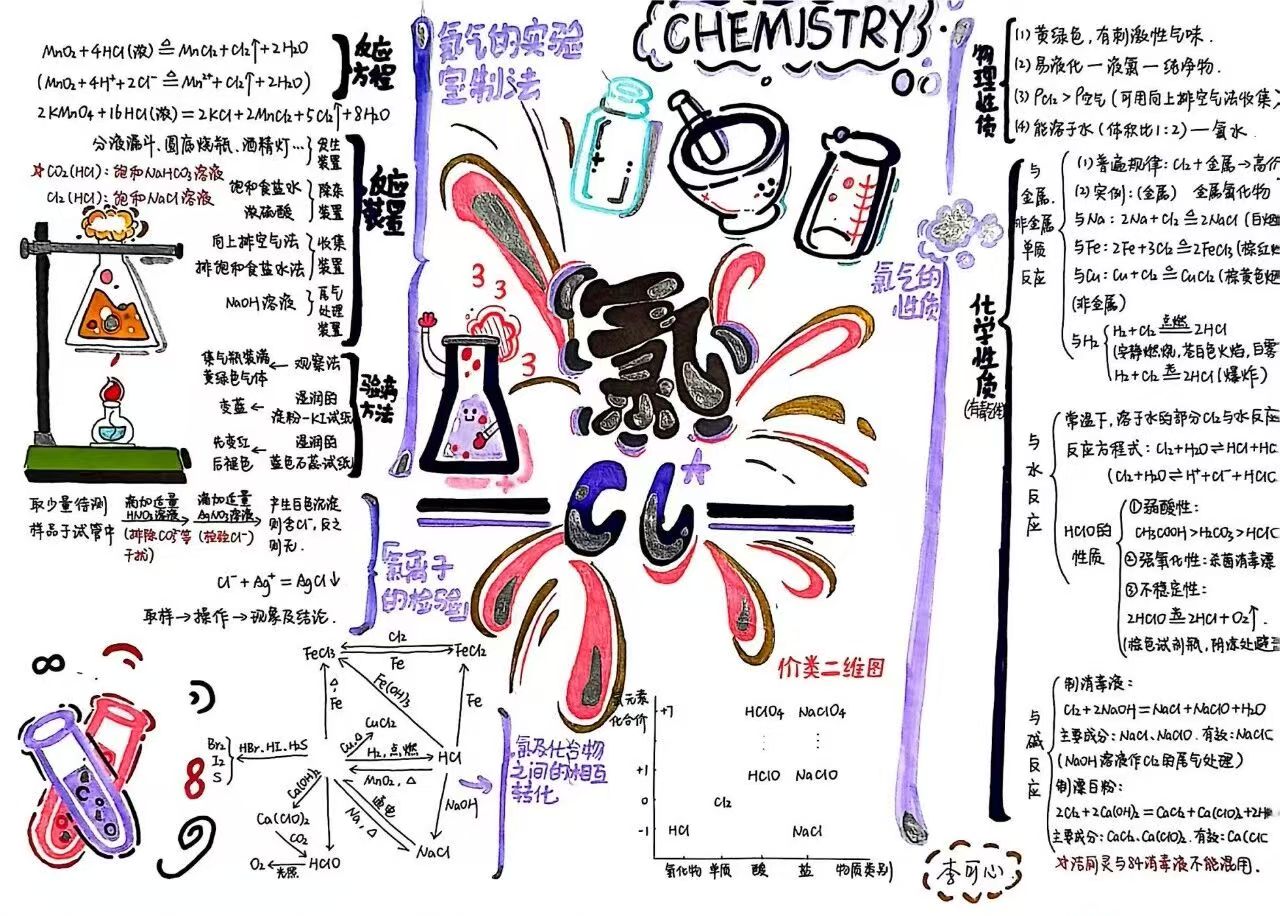 CHEMISTRY
氯气的实验
室制法
MnO₂+4HCl(浓)≜MnCl₂+Cl₂↑+2H₂O
(MnO₂+4H⁺+2Cl⁻≜Mn²⁺+Cl₂↑+2H₂O)
2KMnO₄+16HCl(浓)=2KCl+2MnCl₂+5Cl₂↑+8H₂O
反应
方程
分液漏斗、圆底烧瓶、酒精灯…
发生
装置
☆CO₂(HCl):饱和NaHCO₃溶液
Cl₂(HCl):饱和NaCl溶液
饱和食盐水
浓硫酸
除杂
装置
向上排空气法
排饱和食盐水法
收集
装置
NaOH溶液
尾气
处理
装置
反应
装置
集气瓶装满
黄绿色气体
← 观察法
变蓝 ←
湿润的
淀粉-KI试纸
先变红
后褪色
←
湿润的
蓝色石蕊试纸
验满
方法
3 3 3
氯
Cl
取少量待测
样品于试管中
滴加适量
HNO₃溶液
(排除CO₃²⁻等
干扰)
滴加适量
AgNO₃溶液
(检验Cl⁻)
产生白色沉淀
则含Cl⁻,反之
则无.
Cl⁻+Ag⁺=AgCl↓
取样→操作→现象及结论.
氯离子
的检验
FeCl₃
Cl₂
Fe
FeCl₂
△,Fe
Fe(OH)₃
Fe
CuCl₂
Cu,△
H₂,点燃
HCl
MnO₂,△
Br₂
I₂
S
HBr、HI、H₂S
Ca(OH)₂
Ca(ClO)₂
CO₂
O₂
光照
HClO
通电
Na,△
NaOH
NaCl
氯及化合物
之间的相互
转化
价类二维图
氯元素
化合价
+7 HClO₄ NaClO₄
+1 HClO NaClO
0 Cl₂
-1 HCl NaCl
氢化物 单质 酸 盐 物质类别
氯气的
性质
物理性质
(1)黄绿色,有刺激性气味.
(2)易液化—液氯—纯净物.
(3)ρCl₂>ρ空气(可用向上排空气法收集)
(4)能溶于水(体积比1:2)—氯水.
化学性质
与
金属、
非金属
单质
反应
(1)普遍规律:Cl₂+金属→高价
(2)实例:(金属) 金属氯化物
与Na:2Na+Cl₂≜2NaCl(白烟
与Fe:2Fe+3Cl₂≜2FeCl₃(棕红烟
与Cu:Cu+Cl₂≜CuCl₂(棕黄色烟
(非金属)
与H₂
H₂+Cl₂ 点燃 2HCl
(安静燃烧,苍白色火焰,白雾
H₂+Cl₂ 光 2HCl(爆炸)
与
水
反
应
常温下,溶于水的部分Cl₂与水反应
反应方程式:Cl₂+H₂O⇌HCl+HC
(Cl₂+H₂O⇌H⁺+Cl⁻+HClO
HClO的
性质
①弱酸性:
CH₃COOH>H₂CO₃>HClO
②强氧化性:杀菌消毒漂
③不稳定性:
2HClO 光 2HCl+O₂↑.
(棕色试剂瓶,阴凉处避
与
碱
反
应
制消毒液:
Cl₂+2NaOH=NaCl+NaClO+H₂O
主要成分:NaCl、NaClO.有效:NaClO
(NaOH溶液作Cl₂的尾气处理)
制漂白粉:
2Cl₂+2Ca(OH)₂=CaCl₂+Ca(ClO)₂+2H
主要成分:CaCl₂、Ca(ClO)₂.有效:Ca(ClO
☆洁厕灵与84消毒液不能混用.
李可心